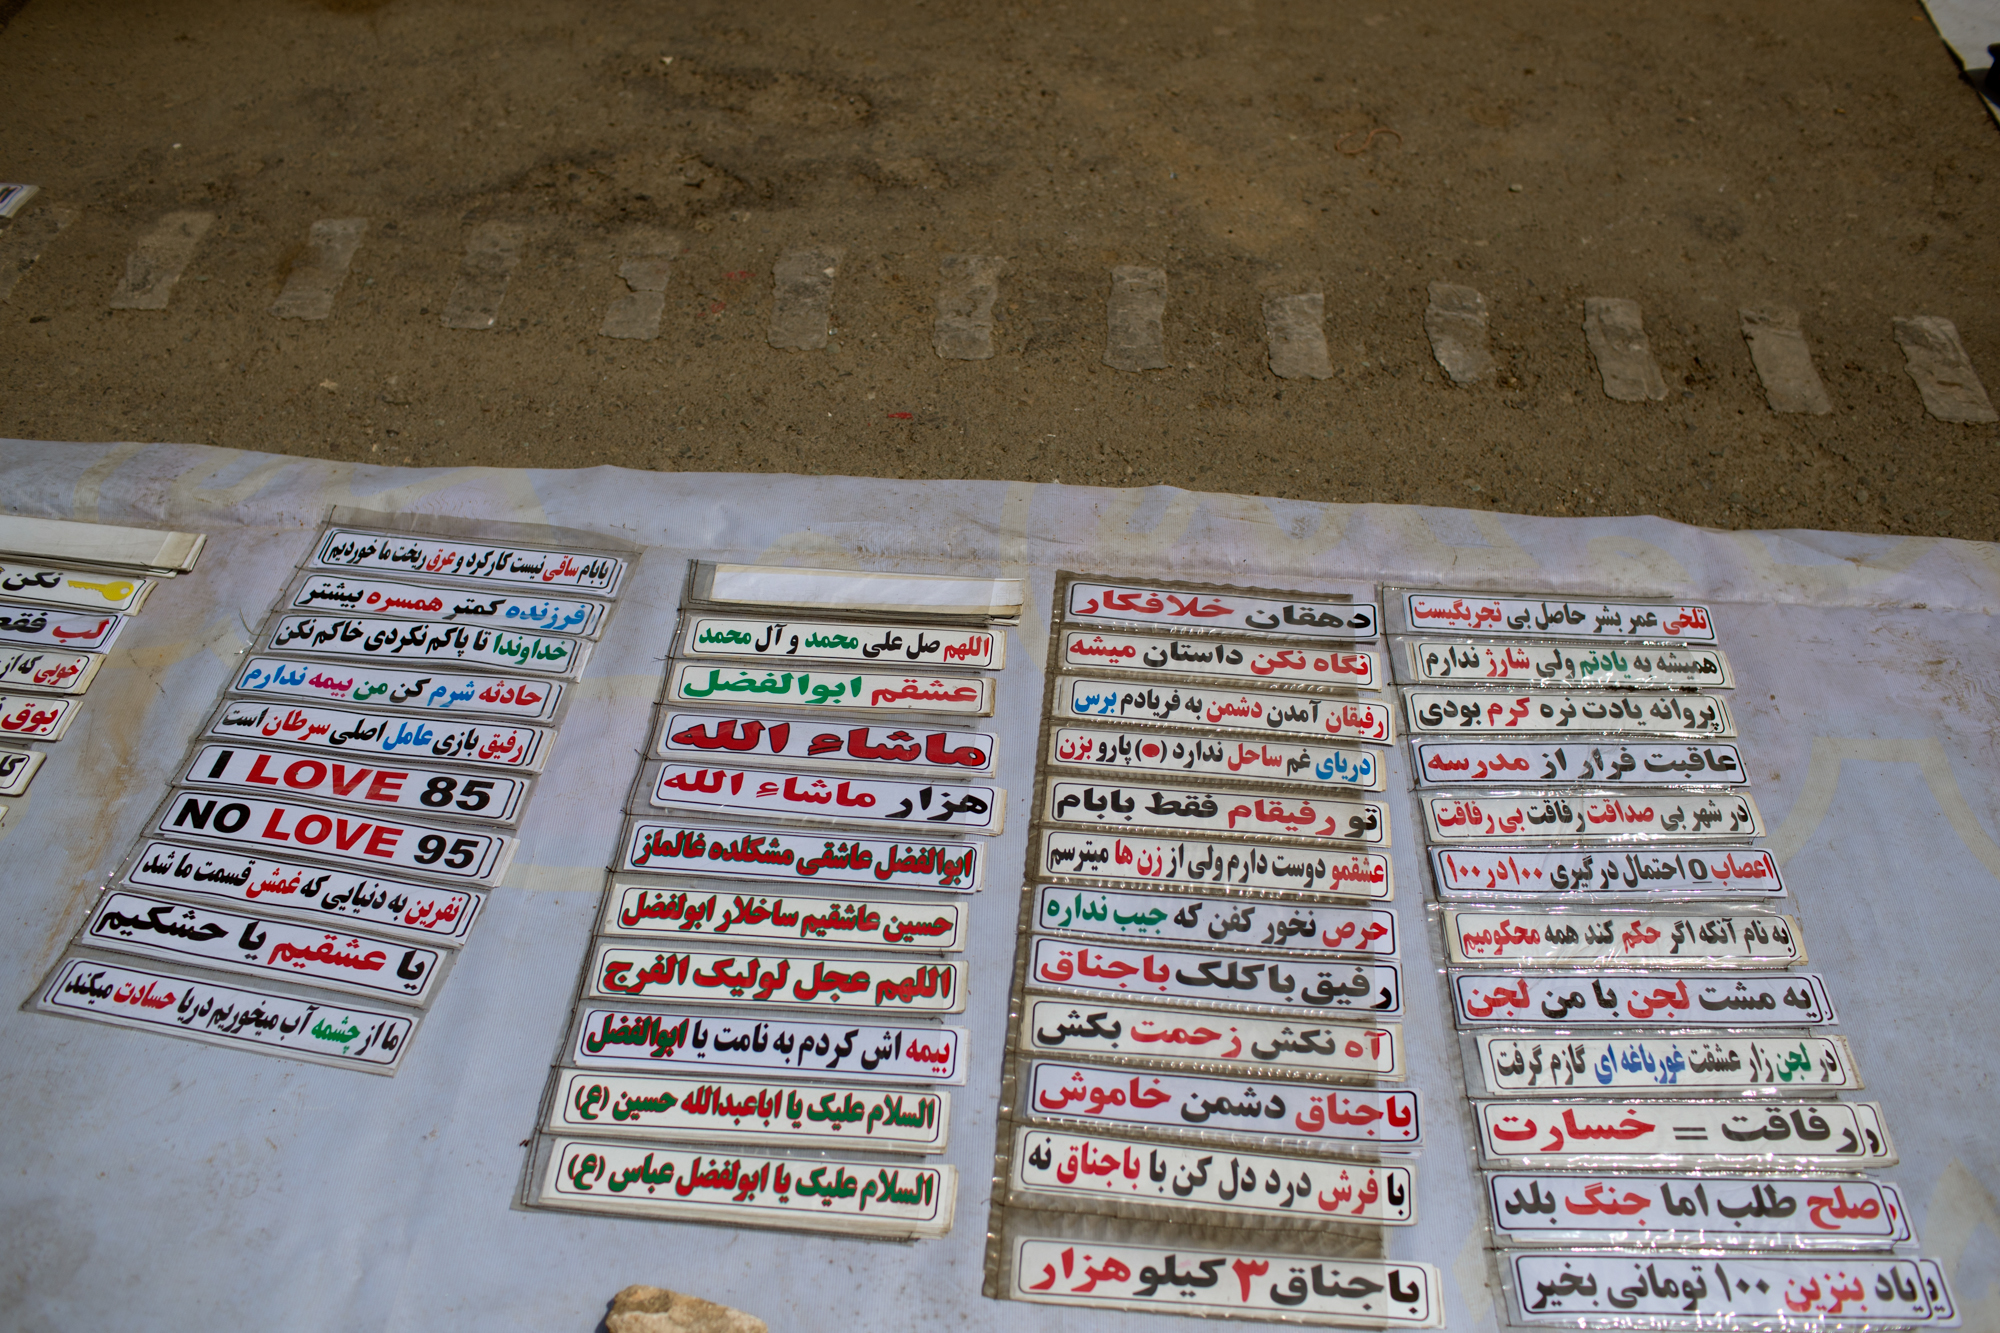 تلخی عمر بشر حاصل بی تجربگیست
همیشه به یادتم ولی شارژ ندارم
پروانه یادت نره کرم بودی
عاقبت فرار از مدرسه
در شهر بی صداقت رفاقت بی رفاقت
اعصاب 0 احتمال درگیری ۱۰۰ در ۱۰۰
به نام آنکه اگر حکم کند همه محکومیم
یه مشت لجن با من لجن
در لجن زار عشقت غورباغه ای گازم گرفت
رفاقت = خسارت
صلح طلب اما جنگ بلد
یاد بنزین ۱۰۰ تومانی بخیر
دهقان خلافکار
نگاه نکن داستان میشه
رفیقان آمدن دشمن به فریادم برس
دریای غم ساحل ندارد (●) پارو بزن
تو رفیقام فقط بابام
عشقمو دوست دارم ولی از زن ها میترسم
حرص نخور کفن که جیب نداره
رفیق با کلک باجناق
آه نکش زحمت بکش
باجناق دشمن خاموش
با فرش درد دل کن با باجناق نه
باجناق ۳ کیلو هزار
اللهم صل علی محمد و آل محمد
عشقم ابوالفضل
ماشاء الله
هزار ماشاء الله
ابوالفضل عاشقی مشکلده غالماز
حسین عاشقیم ساخلار ابولفضل
اللهم عجل لولیک الفرج
بیمه اش کردم به نامت یا ابوالفضل
السلام علیک یا اباعبدالله حسین (ع)
السلام علیک یا ابولفضل عباس (ع)
بابام ساقی نیست کارکرد و عرق ریخت ما خوردیم
فرزنده کمتر همسره بیشتر
خداوندا تا پاکم نکردی خاکم نکن
حادثه شرم کن من بیمه ندارم
رفیق بازی عامل اصلی سرطان است
I LOVE 85
NO LOVE 95
نفرین به دنیایی که غمش قسمت ما شد
یا عشقیم یا خشکیم
ما از چشمه آب میخوریم دریا حسادت میکند
نکن
لب فقط
خوبی که از
بوق